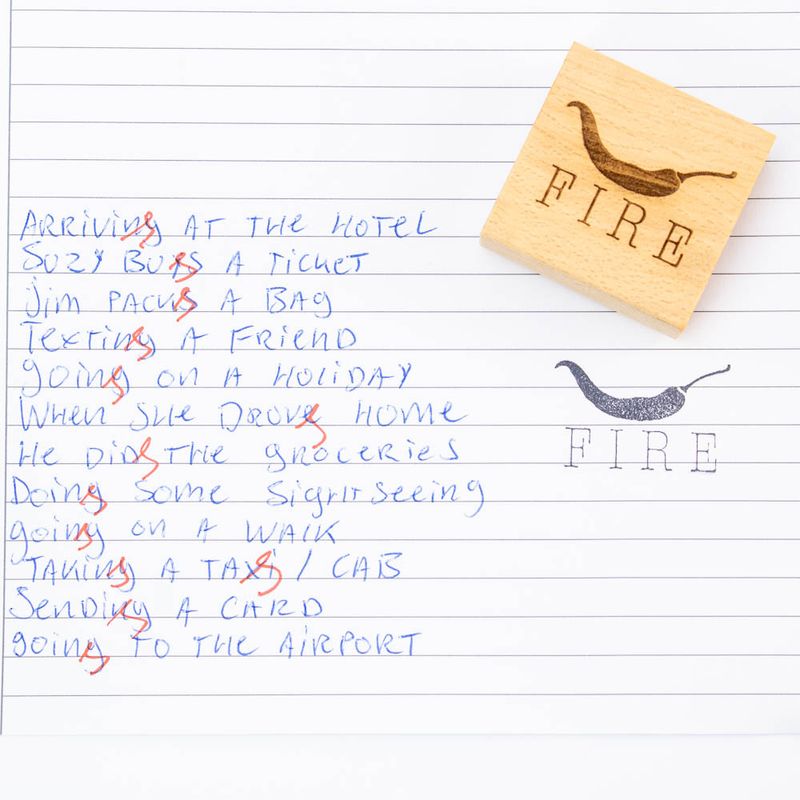 ARRiViNg AT THE HOTEL
SUZY BUYS A TiCKET
Jim PACKS A BAG
TexTing A FRiEnD
going on A HOLiDAY
WHen SHE DROVE HOME
He DiD THE gROCERiES
Doing Some SigHTSeeing
going on A WALK
TAKing A TAXi / CAB
SenDing A CARD
going TO THE AiRPORT
FIRE
FIRE